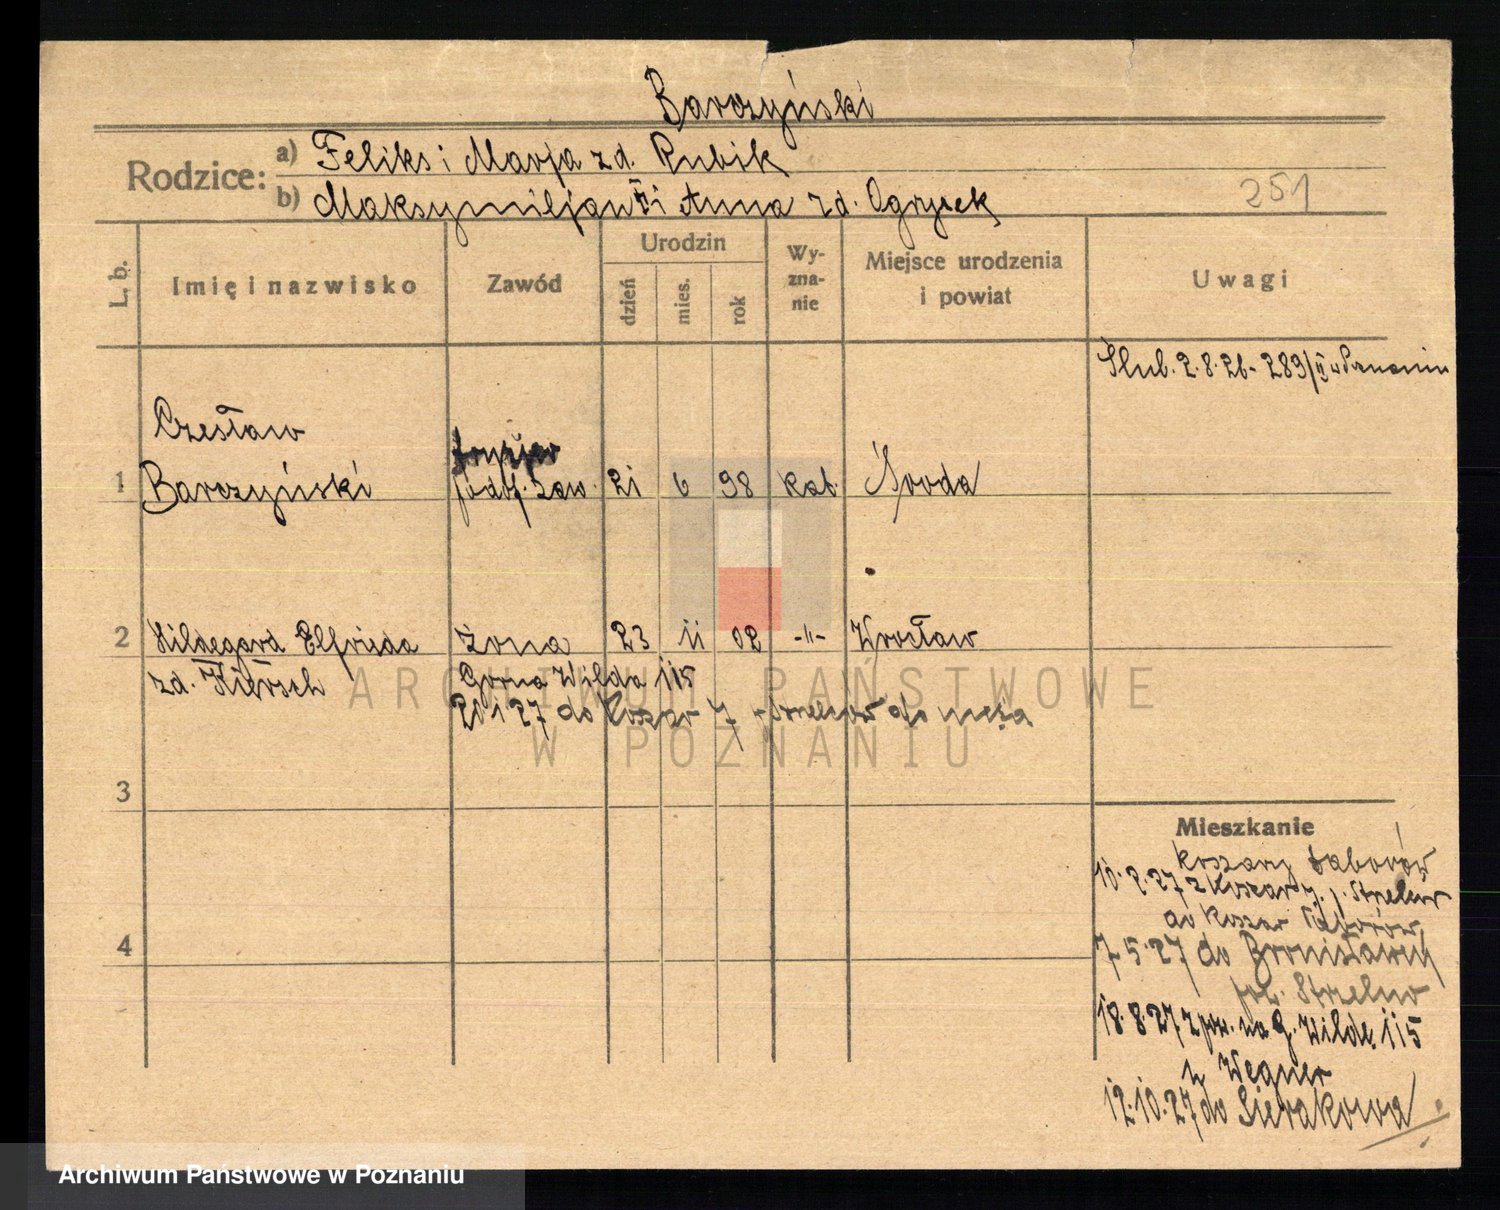 Barczyński
Rodzice:
a) Feliks i Marja zd. Rubik
b) Maksymiljan i Anna zd. Ogryczek
251
L. b.
Imię i nazwisko
Zawód
Urodzin
dzień
mies.
rok
Wy-
zna-
nie
Miejsce urodzenia
i powiat
Uwagi
Ślub. 2.8.26 - 283/II w Poznaniu
Czesław
fryzjer
1 Barczyński podof. zaw. 21 6 98 kat. Środa
2 Hildegard Elfrieda żona 23 11 02 -"- Wrocław
zd. Hiersch Górna Wilda 115
21 1 27 do Koszar 7 Strzelców do męża
3
4
Mieszkanie
Koszary Taborów
10.2.27 z Koszar 7. p. Strzelców
do Koszar Taborów
7.5.27 do Bronisławy
pow. Strzelno
18.8.27 z pow. na G. Wildę 115
u Wegner
12.10.27 do Sierakowa
ARCHIWUM PAŃSTWOWE
W POZNANIU
Archiwum Państwowe w Poznaniu